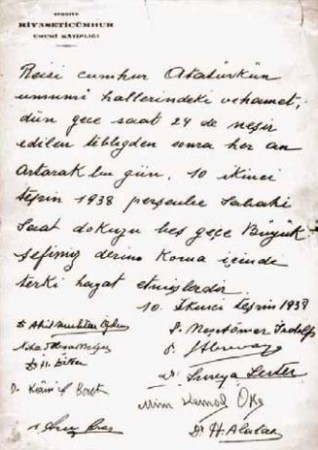 TÜRKİYE
RİYASETİCÜMHUR
UMUMİ KÂTİPLİĞİ
Reisi cumhur Atatürkün
umumî hallerindeki vehamet,
dün gece saat 24 de neşir
edilen tebliğden sonra her an
artarak bu gün, 10 ikinci
teşrin 1938 perşembe sabahı
saat dokuzu beş geçe Büyük
şefimiz derin koma içinde
terki hayat etmişlerdir.
10. İkinci teşrin 1938
Dr. Akil Muhtar Özden
Dr. Neşet Ömer İrdelp
Dr. Süreya Serter
Mim Kemal Öke
Dr.
Dr. H. Alataş